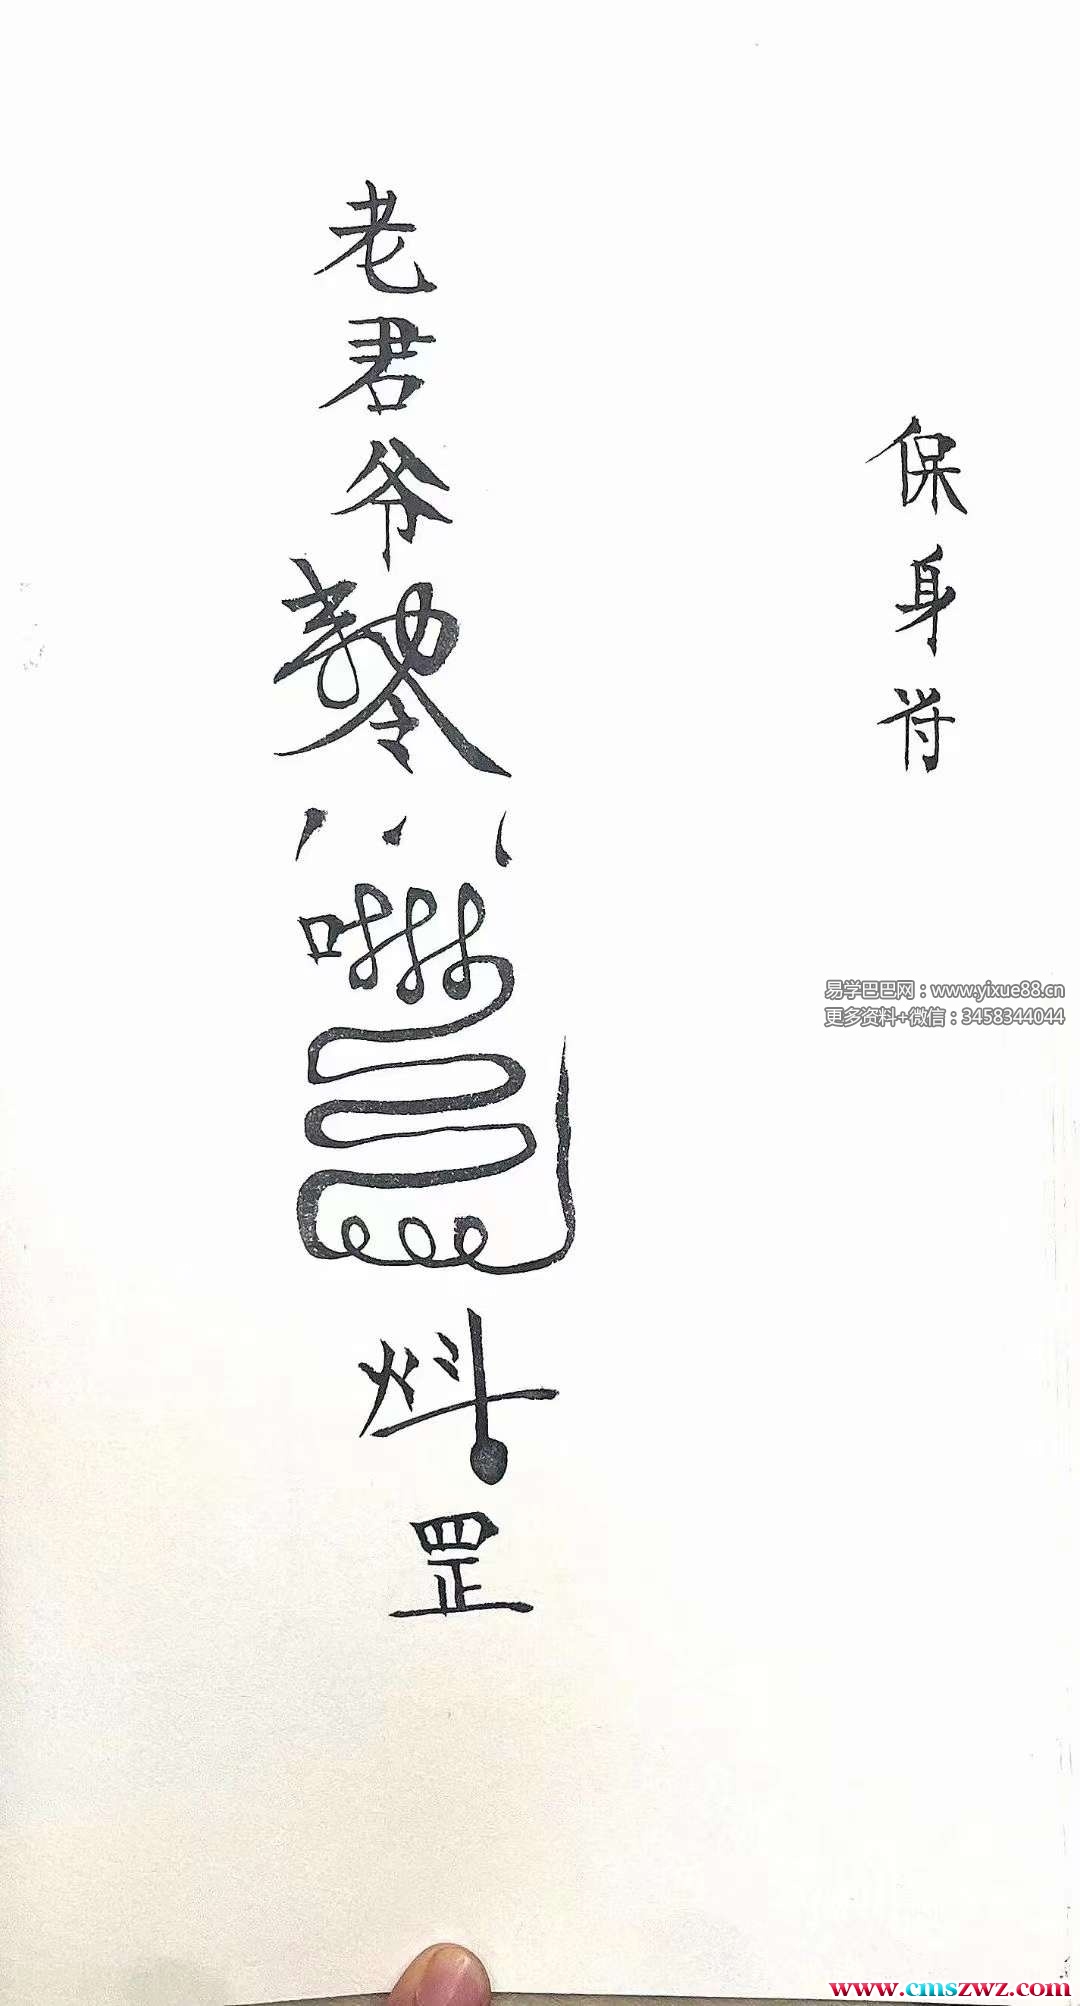 保身符
老君爷
罡
易学巴巴网：www.yixue88.cn
更多资料+微信：3458344044
www.cmszwz.com